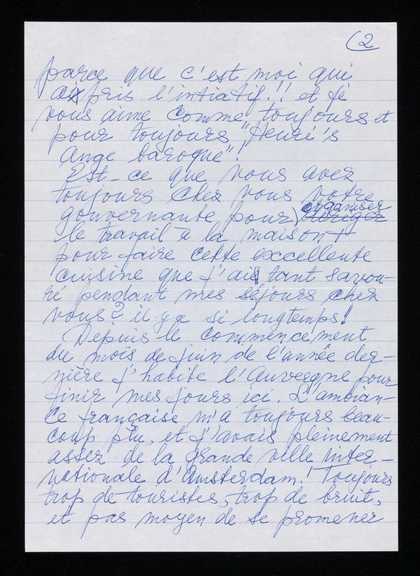 (2
parce que c'est moi qui
a pris l'intiatif!! et je
vous aime comme toujours et
pour toujours "Henri's
Ange baroque"!
Est-ce que vous avez
toujours chez vous votre
gouvernante pour organiser
le travail à la maison +
pour faire cette excellente
cuisine que j'ai tant savou-
ré pendant mes séjours chez
vous? il y a si longtemps!
Depuis le commencement
du mois de juin de l'année der-
nière j'habite l'Auvergne pour
finir mes jours ici. L'ambian-
ce française m'a toujours beau-
coup plu, et j'avais pleinement
assez de la grande ville inter-
nationale d'Amsterdam! Toujours
trop de touristes, trop de bruit,
et pas moyen de se promener